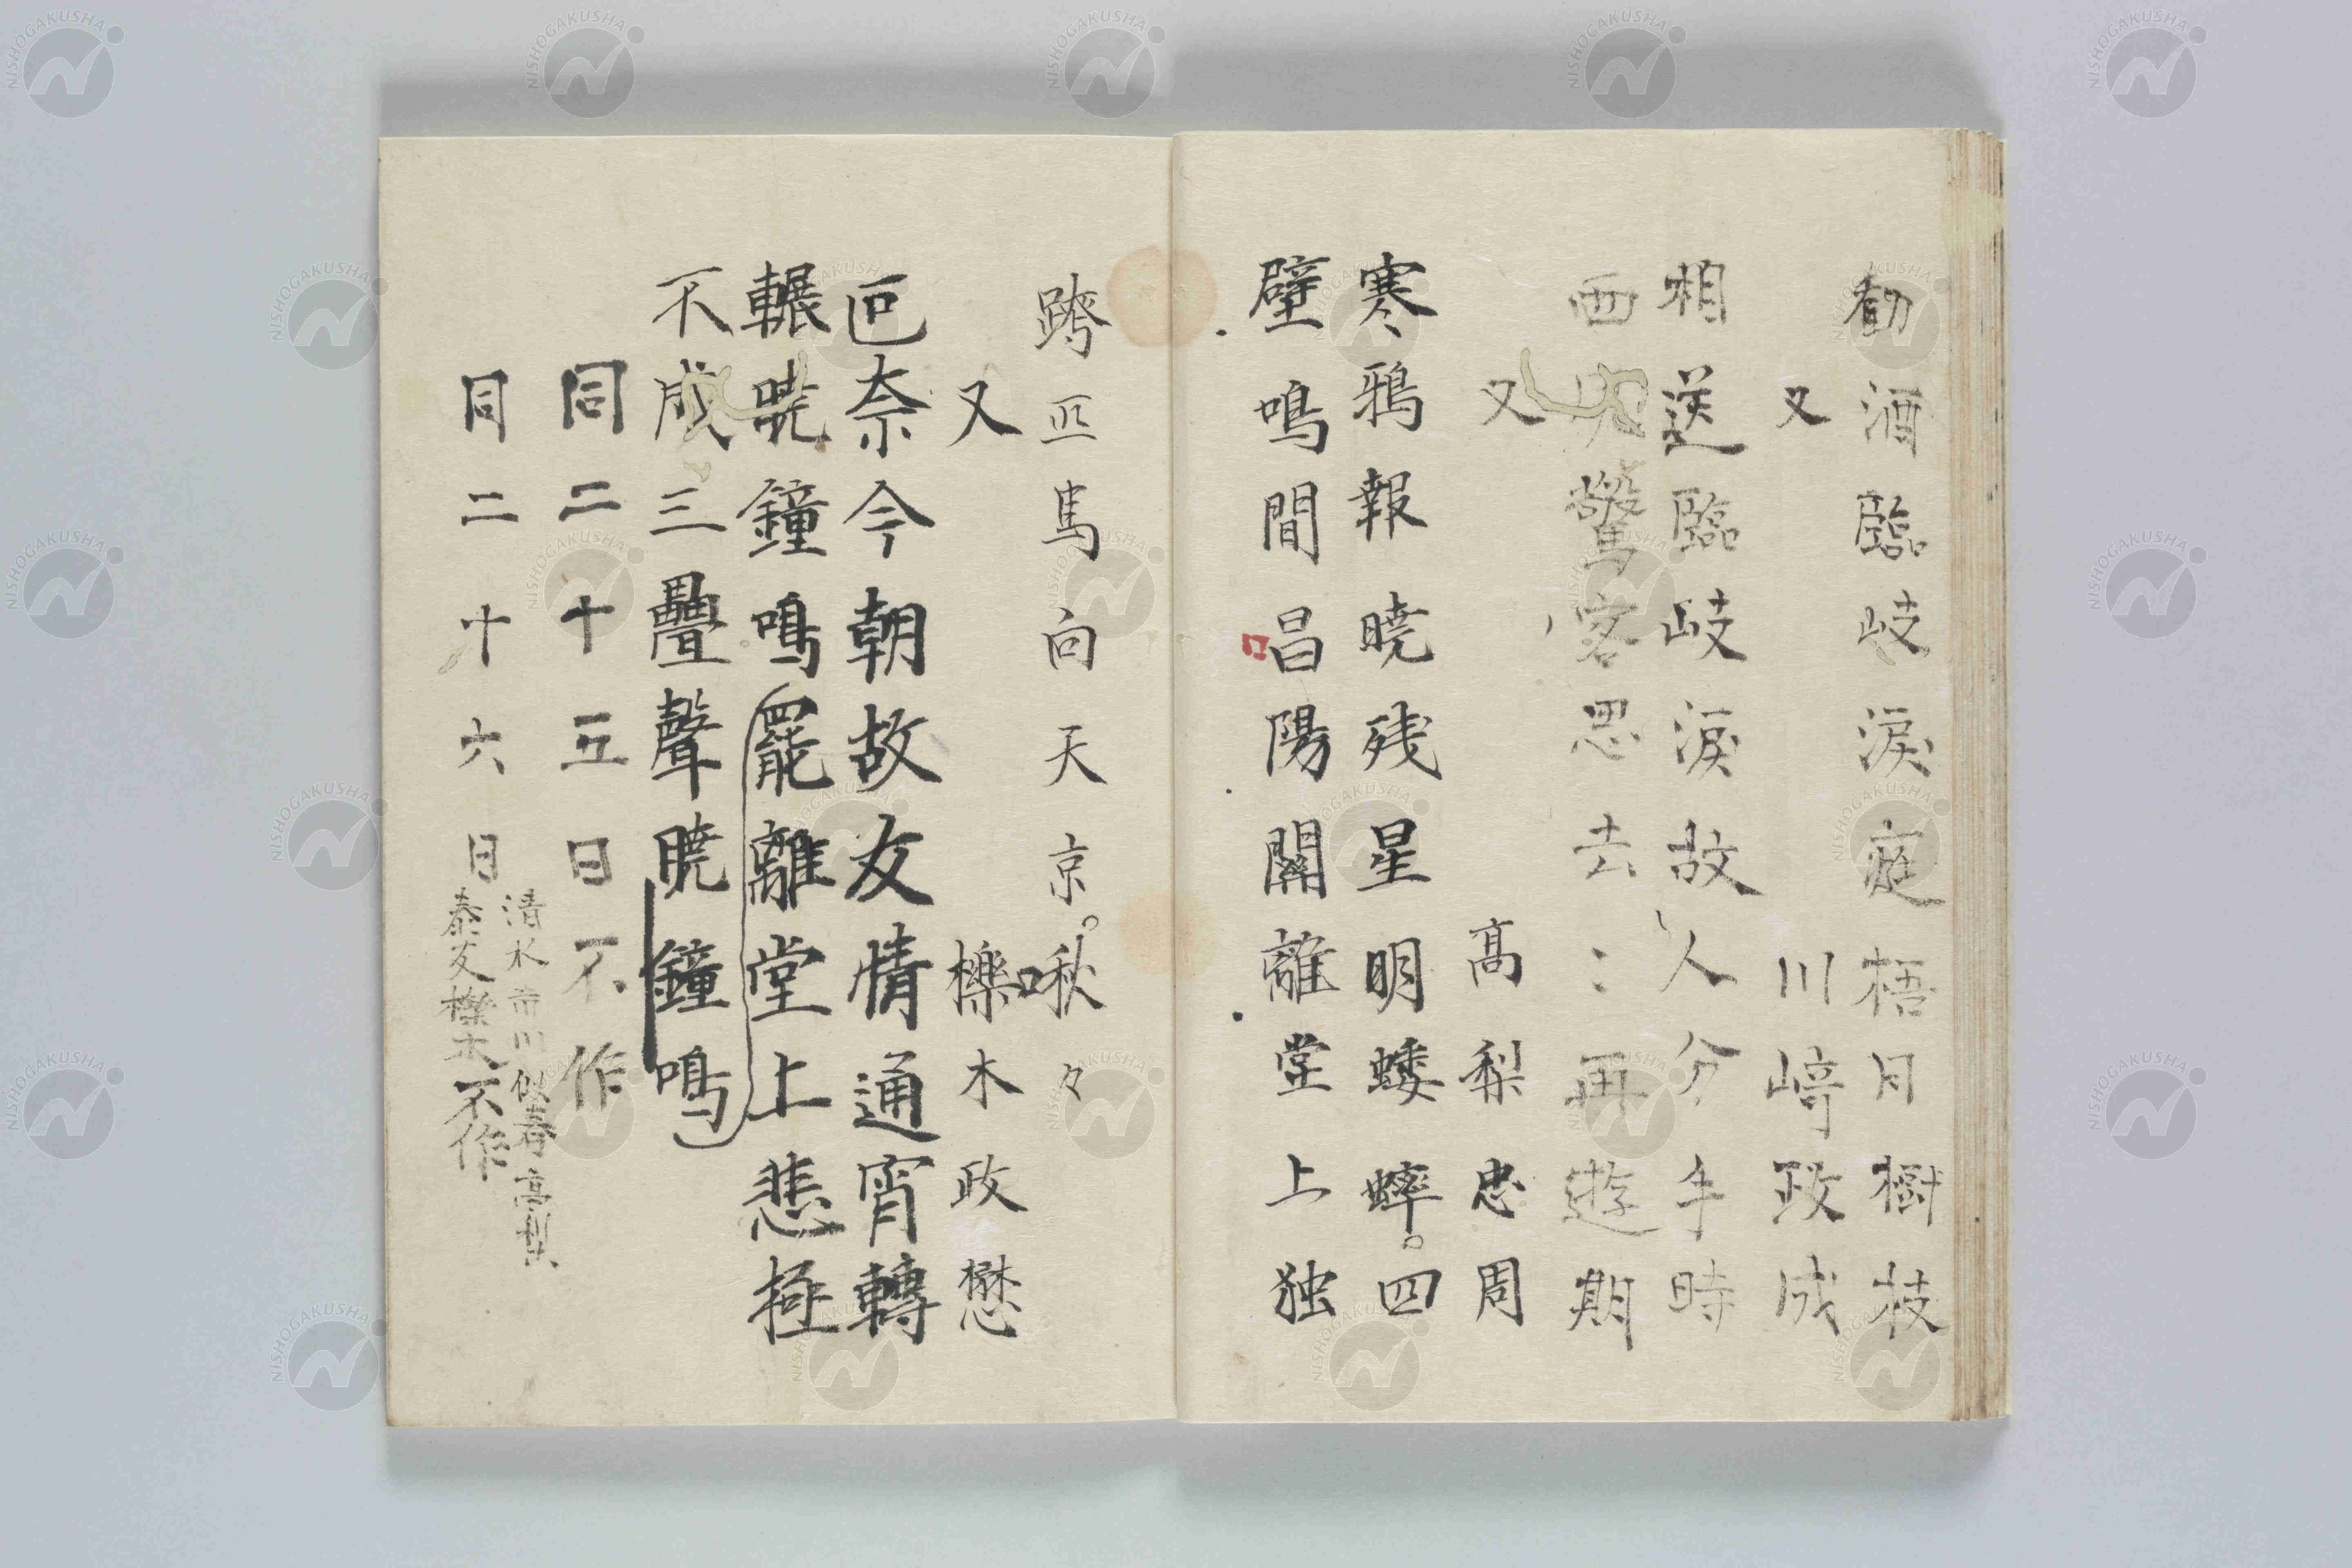 勧酒臨岐涙庭梧月樹枝
又　川﨑政成
相送臨岐涙故人分手時
西 驚客思去〻再遊期
又　高梨忠周
寒鴉報暁残星明螻蟀。四
壁鳴間昌陽關離堂上独
跨匹馬向天京。啾々
又　櫟木政懋
叵奈今朝故友情通宵轉
輾暁鐘鳴罷離堂上悲極
不成三疊聲暁鐘鳴
同二十五日不作
同二十六日
清水市川似春高梨
泰友櫟木不作
NISHOGAKUSHA